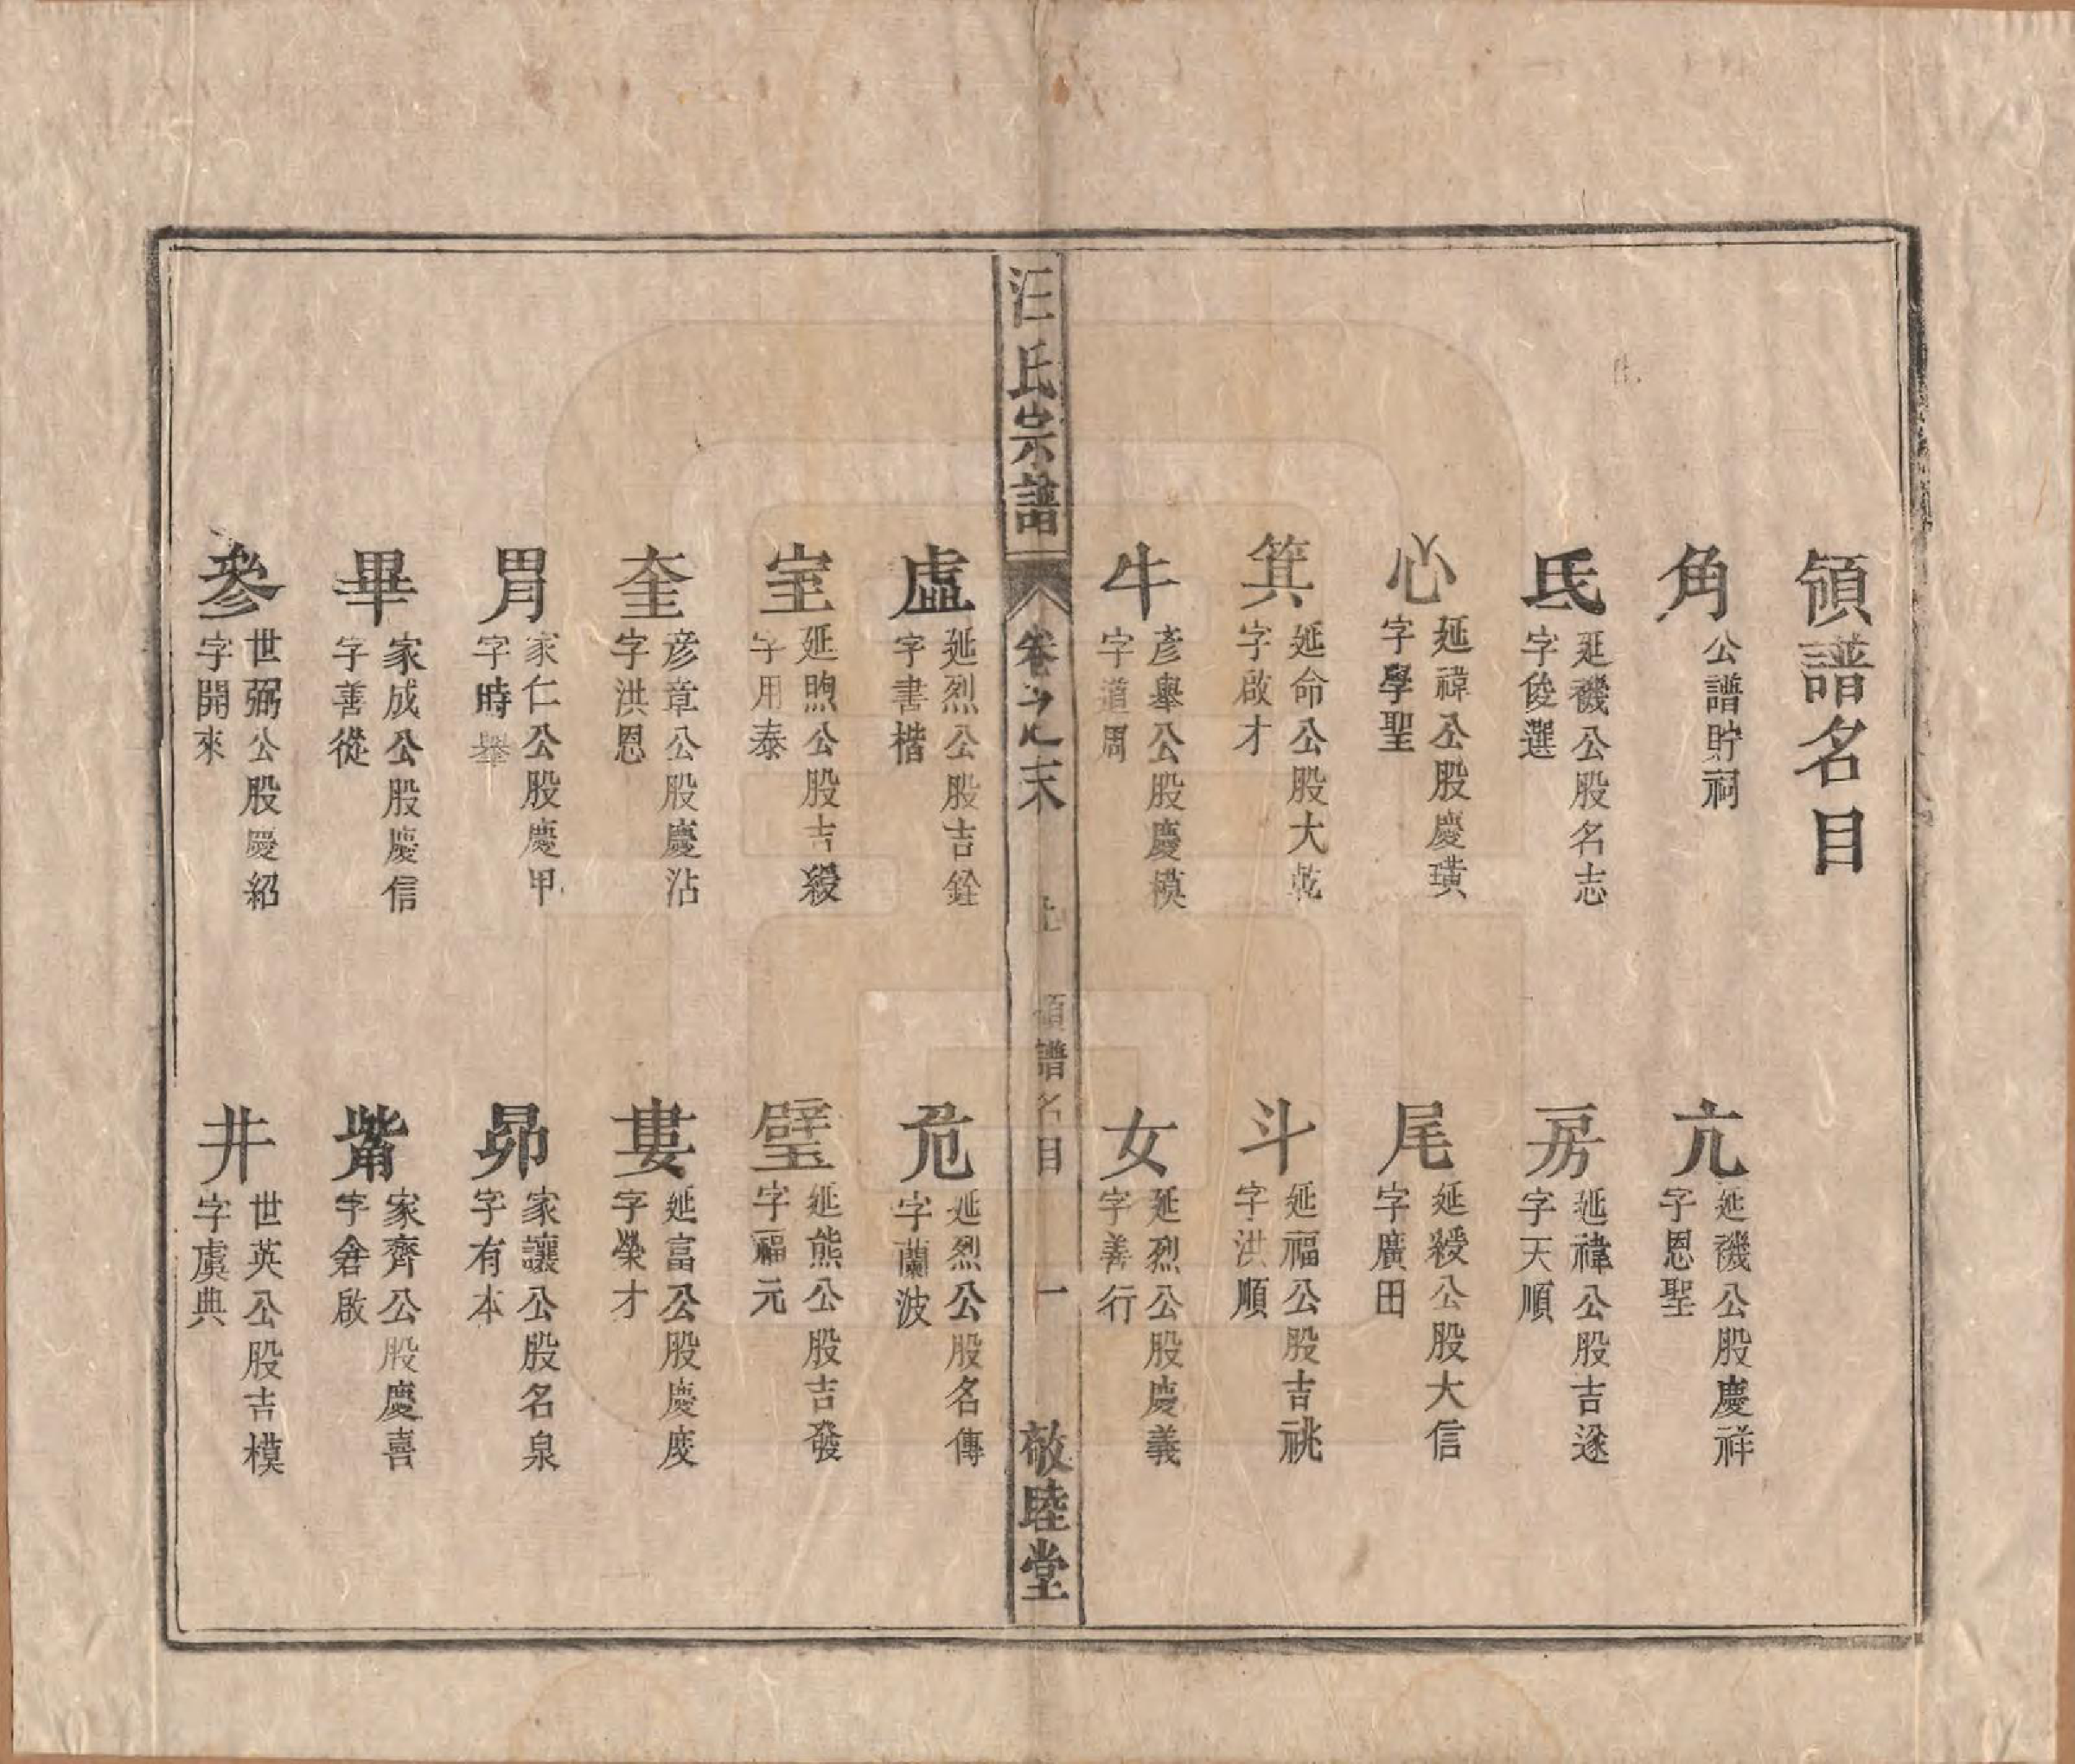 領譜名目
角 公譜貯祠
亢 延禨公股慶祥
字恩聖
氐 延禨公股名志
字俊選
房 延禕公股吉遂
字天順
心 延禕公股慶璜
字學聖
尾 延綬公股大信
字廣田
箕 延命公股大乾
字啟才
斗 延福公股吉祧
字洪順
牛 彥舉公股慶模
字道周
女 延烈公股慶義
字善行
汪氏宗譜
卷之末
上
領譜名目
一
敬睦堂
虛 延烈公股吉銓
字書楷
危 延烈公股名傳
字蘭波
室 延煦公股吉綬
字用泰
壁 延熊公股吉發
字福元
奎 彥章公股慶沾
字洪恩
婁 延富公股慶度
字榮才
胃 家仁公股慶甲
字時舉
昴 家讓公股名泉
字有本
畢 家成公股慶信
字善從
觜 家齊公股慶喜
字倉啟
參 世弼公股慶紹
字開來
井 世英公股吉模
字虞典